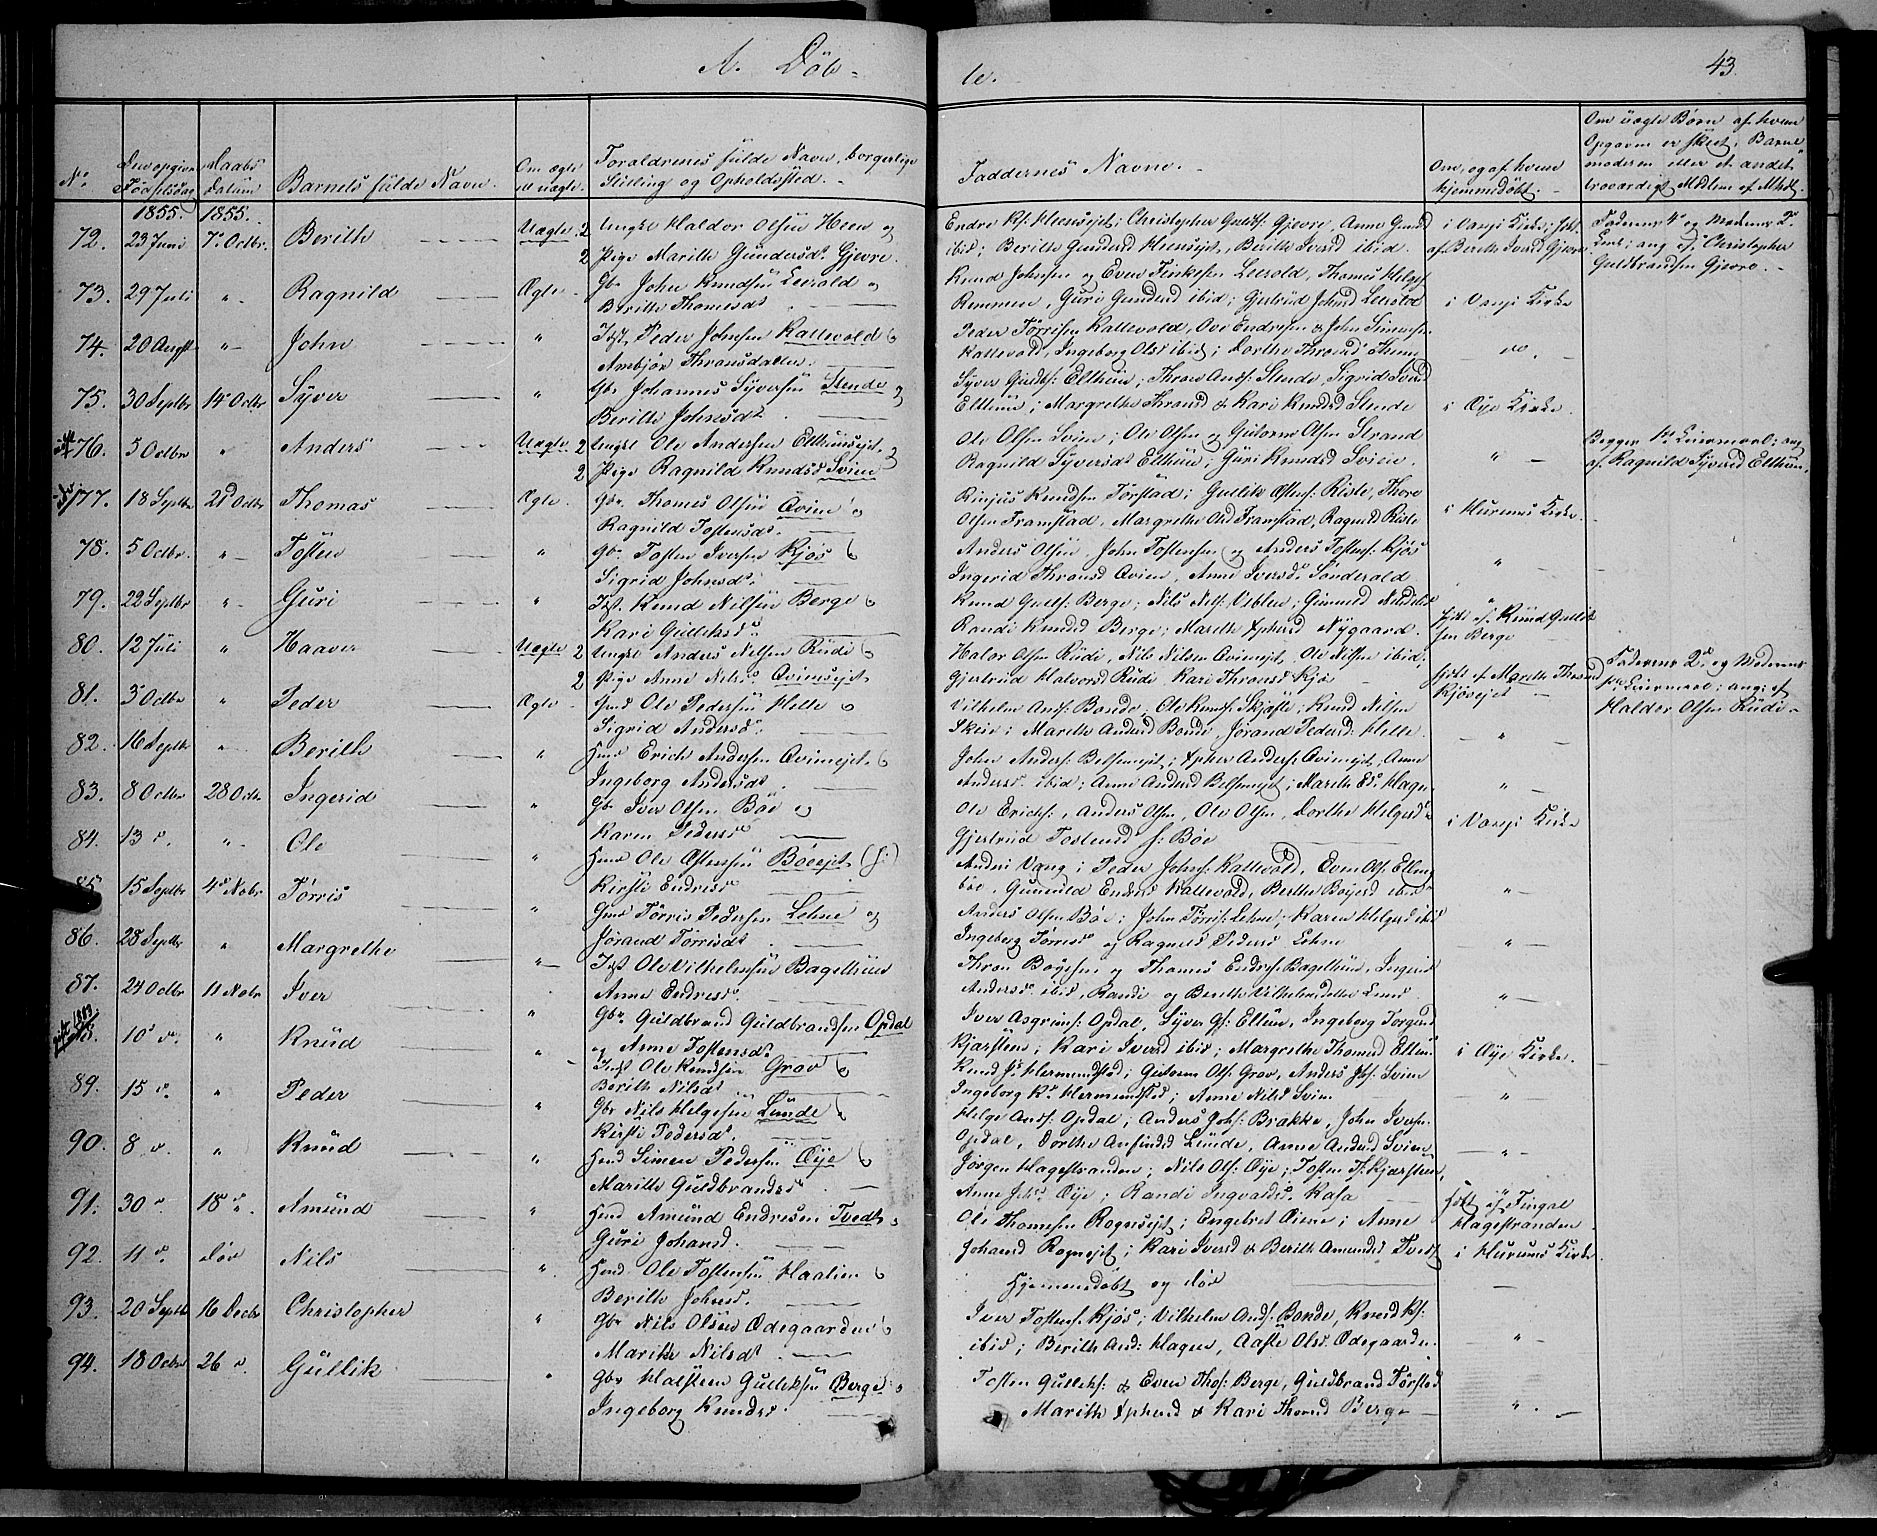 A. Döb-
te.
43.
No.
Den opgivne Fødselsdag
Daabs Datum
Barnets fulde Navn.
Om ægte ell. uægte.
Forældrenes fulde Navn, borgerlige Stilling og Opholdssted.
Faddernes Navne.
Om, og af hvem hjemmedöbt.
Om uægte Børn af hvem Opgaven er skeet, Barnemoderen eller et andet troværdigt Medlem af Mhdt.
1855. 1855.
72. 23 Juni 7de Octbr. Berith Uægte 2 Ungk. Haldor Olsen Heen og
2 Pige Marith Gundersdr. Gjevre.
Berith Iversd ibid.
i Vangs Kirke; hdt. af Berith Iversd Gjevre
Faderens 4de og Moderens 2de Leierm.; ang. af Christopher Guldbrandsen Gjevre.
73. 29 Juli " Ragnild Ægte. Gbr. John Knudsen Leirold og
Berith Thomesdr.
Knud Johnsen og Even Leirold, Thomes Helges.
Remmen, Guri Gundersd ibid; Gjertrud Johnsd Leirold
i Vangs Kirke
74. 20 Augst " John " Inst. Peder Johnsen Kattevold &
Ambjør Thronsdatter.
Peder Törrisen Kattevold, Ove Endresen & John Simensen
Kattevold, Ingeborg Olsd ibid; Dorthe Thronsd
do.
75. 30 Septbr 14de Octbr Syver " Gbr Johannes Syversen Stende &
Berith Johnsdr.
Syver Guldbs. Elthun; Thron Ands. Stende, Sigrid Iversd
Elthun; Margrethe Thronsd & Kari Knudsd Stende
i Øye Kirke
76. 5 Octbr " Anders Uægte. 2 Ungk. Ole Andersen Elthunsejet &
2 Pige Ragnild Knudsd Svien
Ole Olsen Svien; Ole Olsen og Guttorm Olsen Strand
Ragnild Syversdr Elthun; Guri Knudsd Svien.
"
Begges 1ste Leiermaal; ang. af Ragnild Syversd Elthun.
77. 18 Septbr 21de Octbr Thomas Ægte. Gbr. Thomes Olsen Qvien &
Ragnild Tostensdr.
Knudsen Torstad; Gullik Østens. Riste, Thore
Olsen Framstad, Margrethe Olsd Framstad, Ragnild Riste
i Hurums Kirke.
78. 5 Octbr " Tosten " Gbr Tosten Iversen Kjøs &
Sigrid Johnsdr.
Anders Olsen, John Tostensen og Anders Tostens. Kjøs
Ingerid Thronsd Qvien, Anne Iversdr. Sønderold.
"
79. 22 Septbr " Guri " Inst. Knud Nilsen Berge &
Kari Gulliksdr.
Knud Gulls. Berge; Nils Nils.
Randi Knudsd Berge; Marith Nygaard.
hjdt. af Knud Gulliksen Berge
80. 12 Juli " Haaver Uægte 2 Ungk. Anders Nilsen Rudi &
2 Pige Anne Nilsdr. Qviensejet.
Halvor Olsen Rudi, Nils Nilsen Qviensejet, Ole Nilsen ibid.
Gjertrud Halvorsd Rudi, Kari Thronsd Kjøs
hjdt af Marith Thronsd Kjösejet
Faderens 2de og Moderens 1ste Leiermaal; ang. af Haldor Olsen Rudi
81. 3 Octbr " Peder Ægte Gmd Ole Pedersen Helle &
Sigrid Andersdr.
Vilhelm Ands. Bonde; Ole Knuds. Skjefte; Knud Nilsen
Skeie; Marith Andersd Bonde, Jorand Pedersd Helle.
"
82. 16 Septbr " Berith " Hmd Erich Andersen Qviensejet. &
Ingeborg Andersdr.
John Anders. Belsensejet; Xpher Anders. Qviensejet, Anne
Andersd. ibid; Anne Andersd Belsensejet; Marith Hagen.
"
83. 8 Octbr 28 Octbr Ingerid " Gbr Iver Olsen Böe og
Karen Pedersdr
Ole Erichs., Anders Olsen, Ole Olsen, Dorthe Helgesdr.
Gjertrud Tostensd f: Böe
i Vangs Kirke
84. 13 d. " Ole " Hmd Ole Østensen Böeejet (f:)
Kirsti Endresdr
Vang; Peder Johns. Kattevold, Even Ols. Ellingböe,
Gunnild Endresd Kattevold, Berthe Boyesd ibid
"
85. 15 Septbr 4de Novbr Törris " Gmd Törris Pedersen Lehne og
Jörand Törrisdr
Anders Olsen Böe; John Törris. Lehne; Karen Helgesd ibid
Ingeborg Törrisd og Ragnild Pedersd Lehne
"
86. 28 Septbr " Margrethe " Inst Ole Vilhelmsen Bagethun
Anne Endresdr.
Thron Boyesen og Thomes Endres. Bagethun, Ingerid
Andersdr. ibid, Randi og Berith Vilhelmsdøttre
"
87. 24 Octbr 11 Novbr Iver " Gbr. Guldbrand Guldbrandsen Opdal
og Anne Tostensdr.
Iver Asgrims. Opdal, Syver Gs. Eltun, Ingeborg Torgersd
Kjørstein; Kari Iversd ibid; Margrethe Thomesd Eltun.
i Øye Kirke.
88. 10 d. " Knud " Inst Ole Knudsen Grov &
Berith Nilsdr
Knud Js. Hermundstad; Guttorm Ols. Grov, Anders Jbs. Svien
Ingeborg Ks. Hermundstad; Anne Nilsd Svien
"
89. 15 d. " Peder " Gbr Nils Helgesen Lunde &
Kirsti Pedersdr.
Helge Ands. Opdal; Anders Johs. Brække, John Iversen
Opdal, Dorthe Anfindsd Lunde, Anne Andersd Svien
"
90. 8 d. " Knud " Hmd Simen Pedersen Øye &
Marith Guldbrandsdr.
Jörgen Hagestranden; Nils Ols. Øye; Tosten Ts. Kjørstein,
Anne Øye; Randi Ingvardsd. Kasa
hdt af Fingal Hagestranden
91. 30 d. 18de d. Amund " Hmd Amund Endresen Tvedt &
Guri Johansd.
Ole Thomesen Rognsejet; Engebret Øiene; Anne
Johansd Rognsejet; Kari Iversd & Berith Amundsd Tvedt
i Hurums Kirke
92. 11 d. död Nils " Hmd. Ole Tostensen Haalien &
Berith Johnsd.
Hjemmedöbt og död
93. 20 Septbr 16 Decbr Christopher " Gbr Nils Olsen Ødegaarden &
Marithe Nilsdr
Iver Tostens. Kjøs; Vilhelm Ands. Bonde, Knud Ks.
ibid; Berith Ands. Hagen, Aaste Olsd. Ødegaarden.
"
94. 18 Octbr 26 d. Gullik " Gbr Halsten Gulliksen Berge &
Ingeborg Knudsd.
Tosten Gulliks. & Even Thos. Berge, Guldbrand Törstad
Marith Xphersd & Kari Thomesd Berge
"